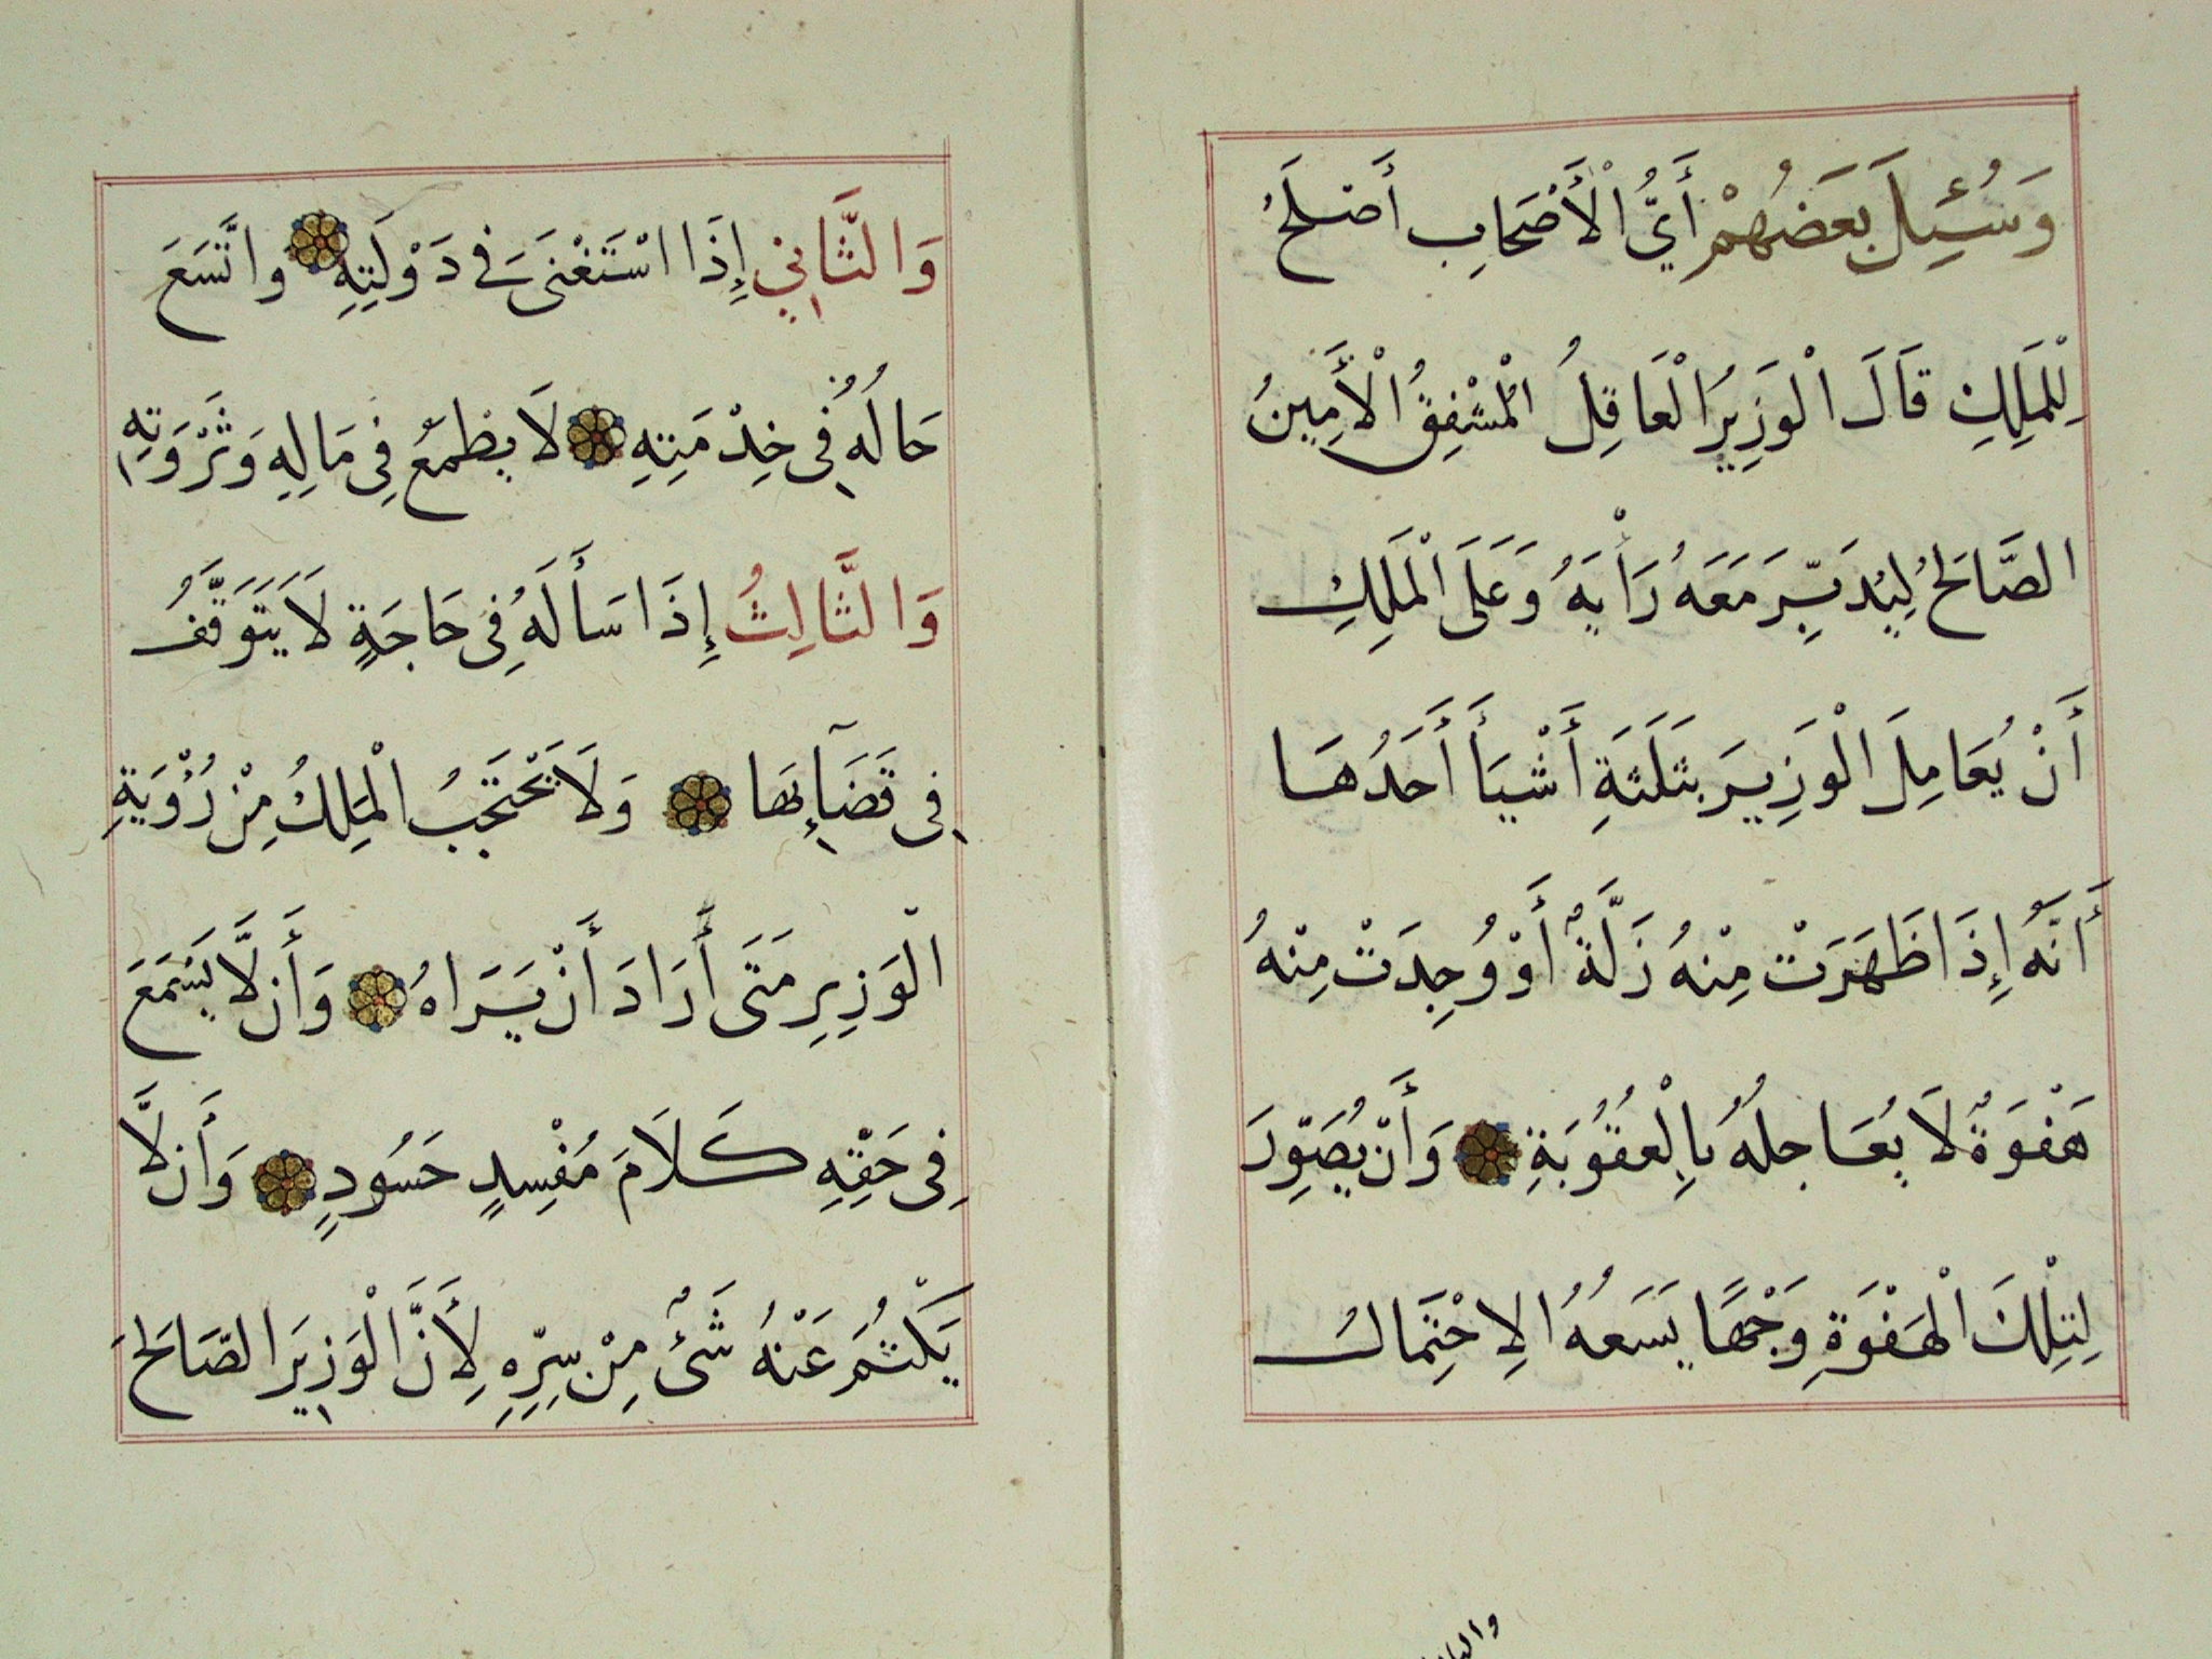 وَسُئِلَ بَعَضُهُمْ أَيُّ الْأَصْحَابِ أَصْلَحُ
لِلْمَلِكِ قَالَ الْوَزِيرُ الْعَاقِلُ الْمُشْفِقُ الْأَمِينُ
الصَّالِحُ لِيُدَبِّرَ مَعَهُ رَأْيَهُ وَعَلَى الْمَلِكِ
أَنْ يُعَامِلَ الْوَزِيرَ بِثَلَثَةِ أَشْيَأَ أَحَدُهَا
أَنَّهُ إِذَا ظَهَرَتْ مِنْهُ زَلَّةٌ أَوْ وُجِدَتْ مِنْهُ
هَفْوَةٌ لَا يُعَاجِلُهُ بِالْعُقُوبَةِ وَأَنْ يُصَوِّرَ
لِتِلْكَ الْهَفْوَةِ وَجْهًا يَسَعُهُ الِاحْتِمَالُ
وَالثَّانِي إِذَا اسْتَغْنَى فِي دَوْلَتِهِ وَاتَّسَعَ
حَالُهُ فِي خِدْمَتِهِ لَا يَطْمَعُ فِي مَالِهِ وَثَرْوَتِهِ
وَالثَّالِثُ إِذَا سَأَلَهُ فِي حَاجَةٍ لَا يَتَوَقَّفُ
فِي قَضَآئِهَا وَلَا يَحْتَجِبُ الْمَلِكُ مِنْ رُؤْيَةِ
الْوَزِيرِ مَتَى أَرَادَ أَنْ يَرَاهُ وَأَنْ لَّا يَسْمَعَ
فِي حَقِّهِ كَلَامَ مُفْسِدٍ حَسُودٍ وَأَنْ لَّا
يَكْتُمَ عَنْهُ شَئٌ مِنْ سِرِّهِ لِأَنَّ الْوَزِيرَ الصَّالِحَ